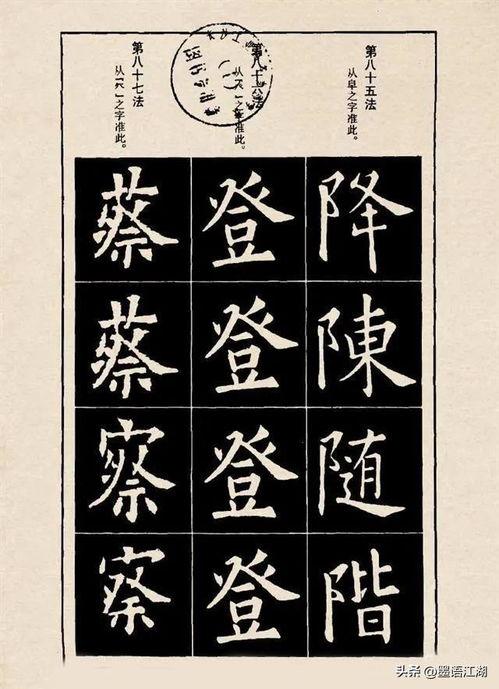 第八十五法
从阜之字准此。
降
陳
随
階
第八十六法
从「癶」之字准此。
登
登
登
登
第八十七法
之字准此。
蔡
蔡
察
察
头条 @墨语江湖